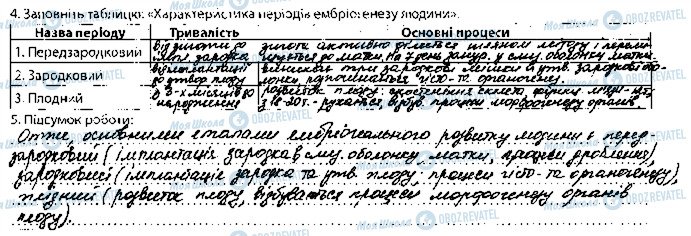 4. Заповніть таблицю: «Характеристика періодів ембріогенезу людини».
Назва періоду Тривалість Основні процеси
1. Передзародковий від зиготи до зигота активно ділиться шляхом мітозу і
імпл. зародка до матки на 7 день заглиб. у слиз. оболонку матки
2. Зародковий від імплантації
до утвор плоду гісто- та органогенез.
3. Плодний з 3-х місяців до розвиток плоду: скостеніння скелета,
народження з 18-20 т. - рухається, відбув. процеси морфогенезу органів
5. Підсумок роботу:
Отже, основними етапами ембріонального розвитку людини є перед-
зародковий (імплантація зародка в слиз. оболонку матки, процеси дроблення),
зародковий (імплантація зародка та утв. плоду, процеси гісто- та органогенезу),
плідний (розвиток плоду, відбуваються процеси морфогенезу органів
плоду).